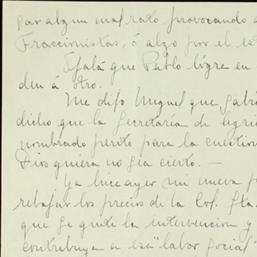 por algun mal rato provocando a
Fraccionistas, ó algo por el es
Ojalá que Pablo logre en
den a otro.
Me dijo Miguel que Gabri
dicho que la Secretaría de Agric
nombrado perito para la cuestion
Dios quiera no sea cierto. —
Ya hice ayer mi nueva p
rebajar los precios de la Col. Sta.
que se quite la intervencion y
contribuya a esa "labor social"